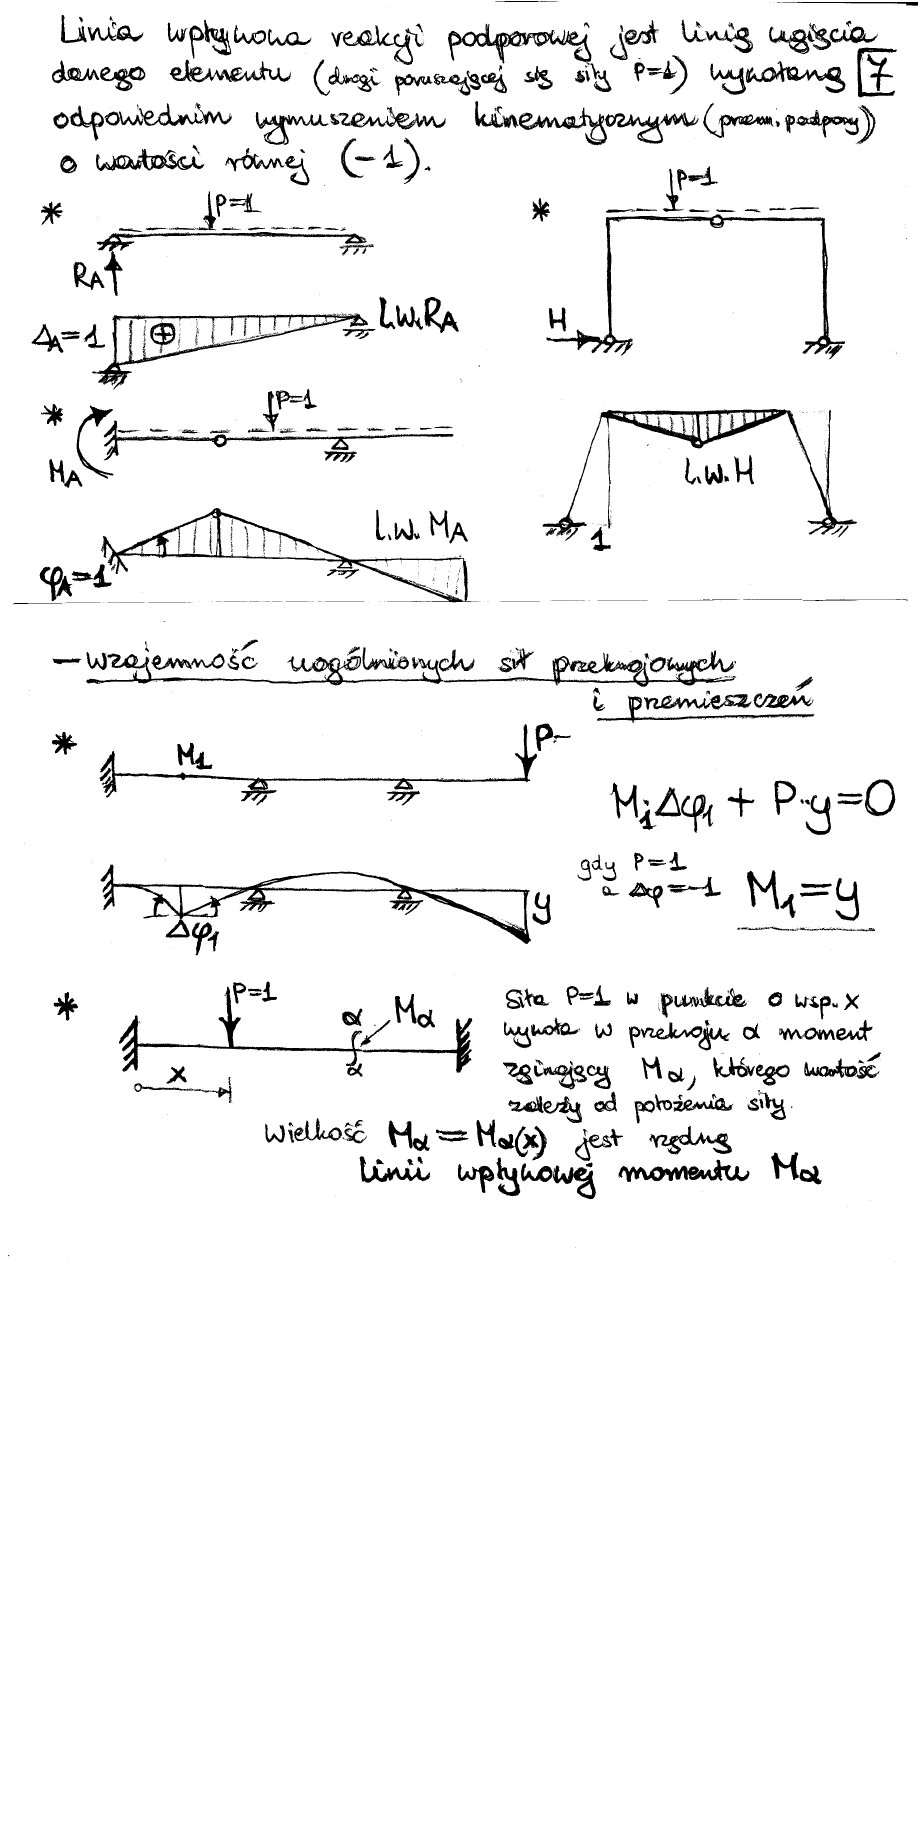 Linia wpływowa reakcji podporowej jest linią ugięcia
danego elementu (drogi poruszającej się siły P=1) wywołaną 7
odpowiednim wymuszeniem kinematycznym (przem. podpory)
o wartości równej (-1).
* P=1
* P=1
RA
H
ΔA=1 + L.W.RA
* P=1
MA
L.W. H
1
L.W. MA
φA=1
— wzajemność uogólnionych sił przekrojowych
i przemieszczeń
* M1 P
M1Δφ1 + P·y=0
gdy P=1
a Δφ=-1 M1=y
y
Δφ1
* P=1 α Mα
α
x
Siła P=1 w punkcie o wsp. x
wywoła w przekroju α moment
zginający Mα, którego wartość
zależy od położenia siły.
Wielkość Mα = Mα(x) jest rzędną
linii wpływowej momentu Mα